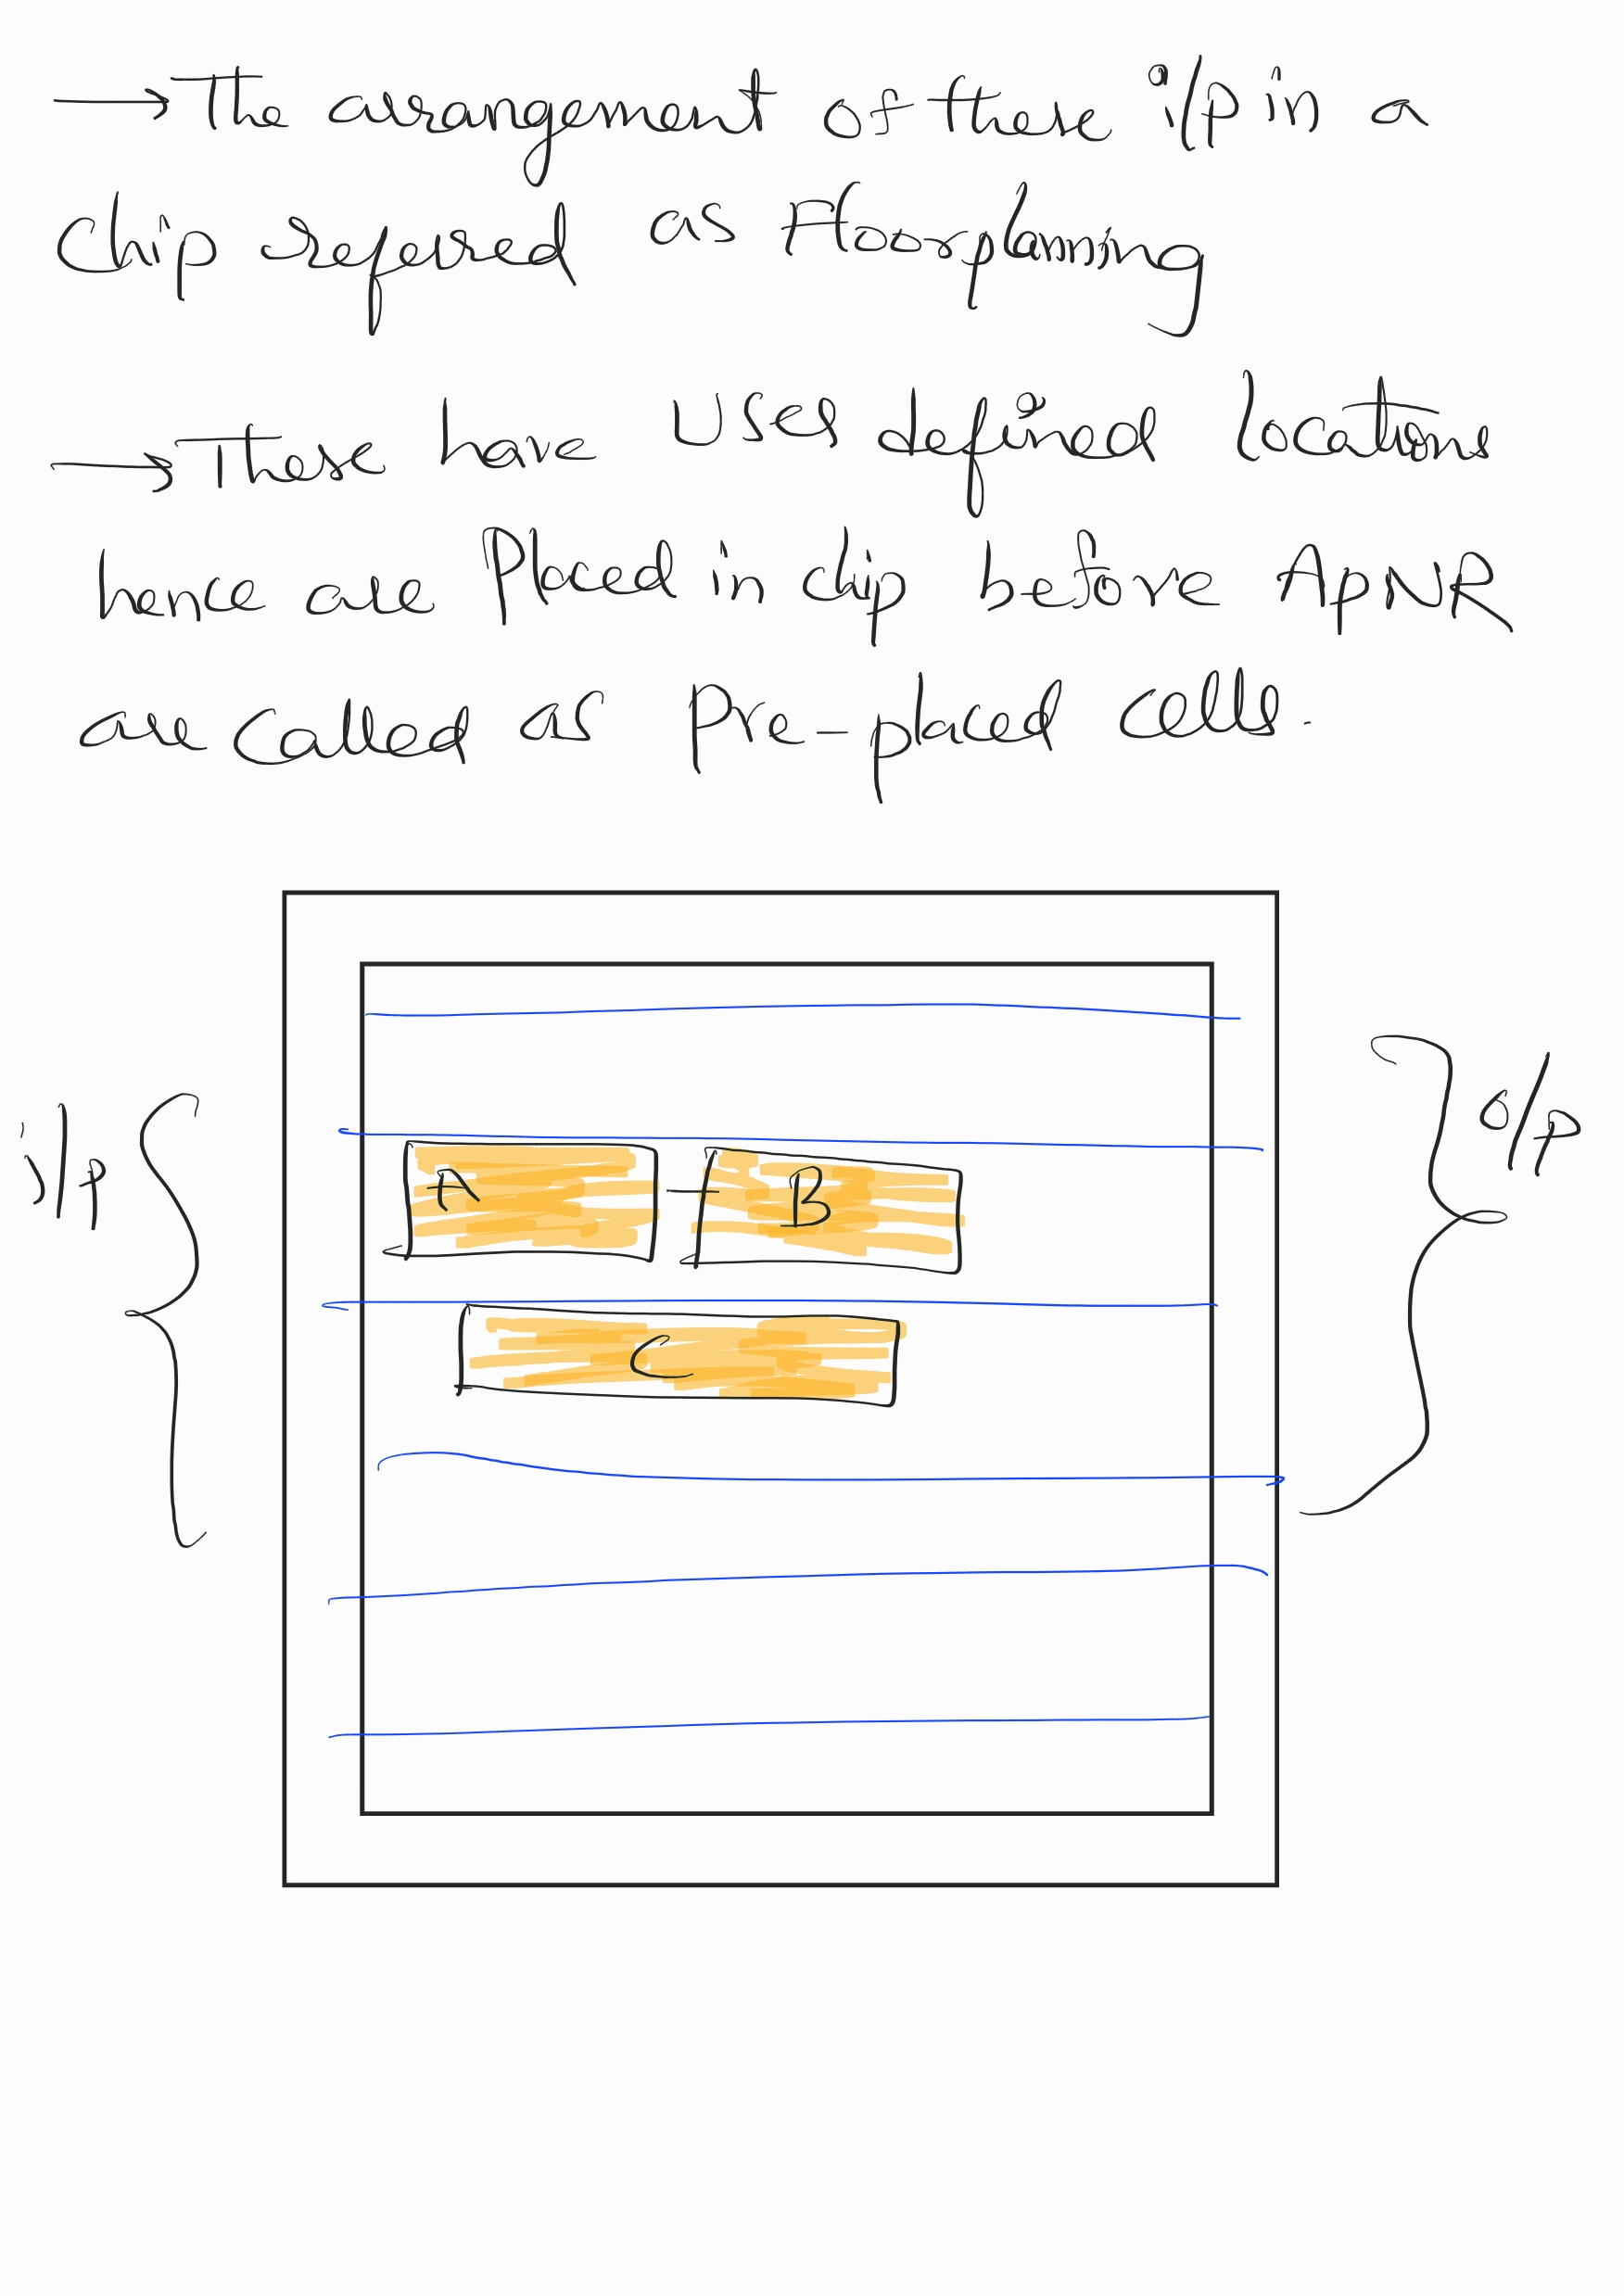 → The arrangement of these i/p in a
Chip refered as Floorplanning
→ These have User defined locations
hence are Placed in chip before APNR
are called as Pre-placed cells.
i/p
o/p
A
B
C